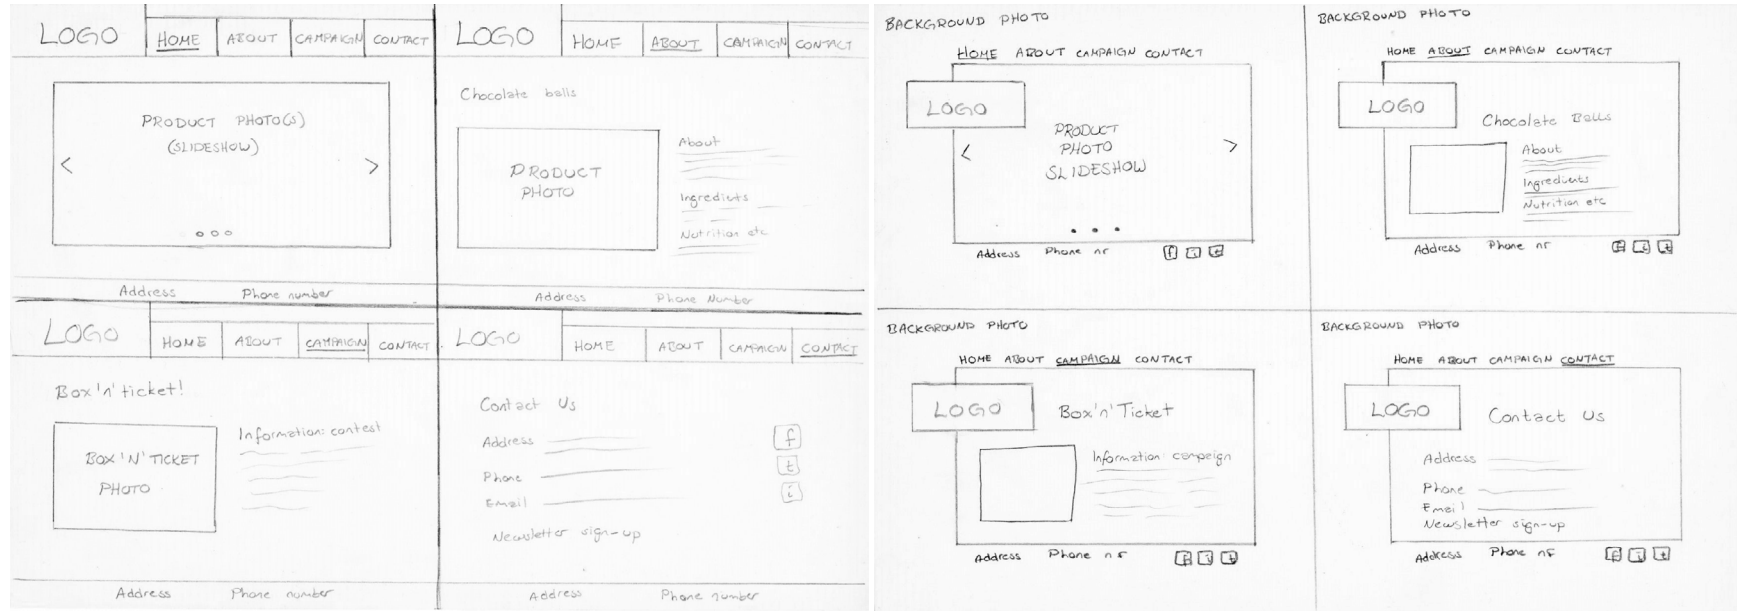 LOGO
HOME ABOUT CAMPAIGN CONTACT
PRODUCT PHOTO(S)
(SLIDESHOW)
< >
Address Phone number
LOGO
HOME ABOUT CAMPAIGN CONTACT
Chocolate balls
PRODUCT
PHOTO
About
Ingredients
Nutrition etc
Address Phone Number
LOGO
HOME ABOUT CAMPAIGN CONTACT
Box'n'ticket!
BOX'N'TICKET
PHOTO
Information: contest
Address Phone number
LOGO
HOME ABOUT CAMPAIGN CONTACT
Contact Us
Address
Phone
Email
Newsletter sign-up
f
t
i
Address Phone number
BACKGROUND PHOTO
HOME ABOUT CAMPAIGN CONTACT
LOGO
PRODUCT
PHOTO
SLIDESHOW
< >
Address Phone nr f i t
BACKGROUND PHOTO
HOME ABOUT CAMPAIGN CONTACT
LOGO
Chocolate Balls
About
Ingredients
Nutrition etc
Address Phone nr f i t
BACKGROUND PHOTO
HOME ABOUT CAMPAIGN CONTACT
LOGO
Box'n'Ticket
Information: campaign
Address Phone nr f i t
BACKGROUND PHOTO
HOME ABOUT CAMPAIGN CONTACT
LOGO
Contact Us
Address
Phone
Email
Newsletter sign-up
Address Phone nr f i t